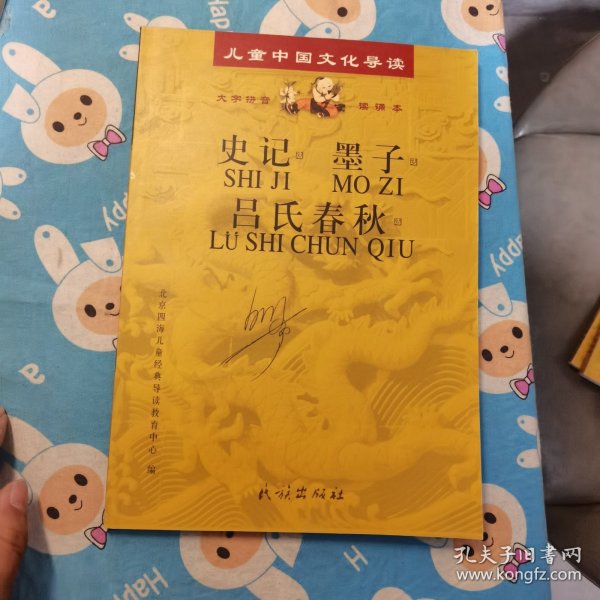 儿童中国文化导读
大字拼音 读诵本
史记选 墨子选
SHI JI MO ZI
吕氏春秋选
LÜ SHI CHUN QIU
北京四海儿童经典导读教育中心 编
民族出版社
Happy
Happy
Happy
Happy
孔夫子旧书网
www.kongfz.com